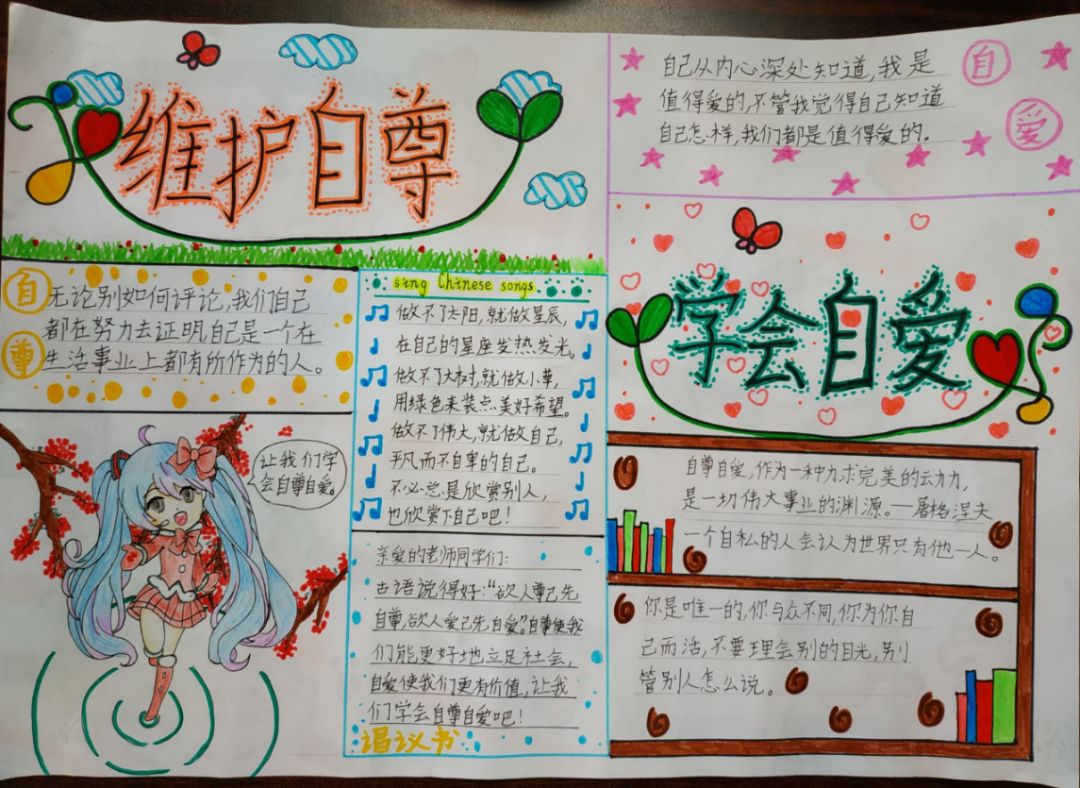 维护自尊
自尊
无论别如何评论,我们自己
都在努力去证明,自己是一个在
生活事业上都有所作为的人。
让我们学
会自尊自爱。
sing Chinese songs
做不了太阳,就做星辰,
在自己的星座发热发光。
做不了大树,就做小草,
用绿色来装点美好希望。
做不了伟大,就做自己,
平凡而不自卑的自己。
不必总是欣赏别人,
也欣赏下自己吧!
亲爱的老师同学们:
古语说得好:“欲人尊己先
自尊,欲人爱己先自爱”。自尊使我
们能更好地立足社会,
自爱使我们更有价值,让我
们学会自尊自爱吧!
倡议书
自己从内心深处知道,我是
值得爱的,不管我觉得自己知道
自己怎样,我们都是值得爱的。
自爱
学会自爱
自尊自爱,作为一种力求完美的动力,
是一切伟大事业的渊源。—屠格涅夫
一个自私的人会认为世界只有他一人。
你是唯一的,你与众不同,你为你自
己而活,不要理会别的目光,别
管别人怎么说。